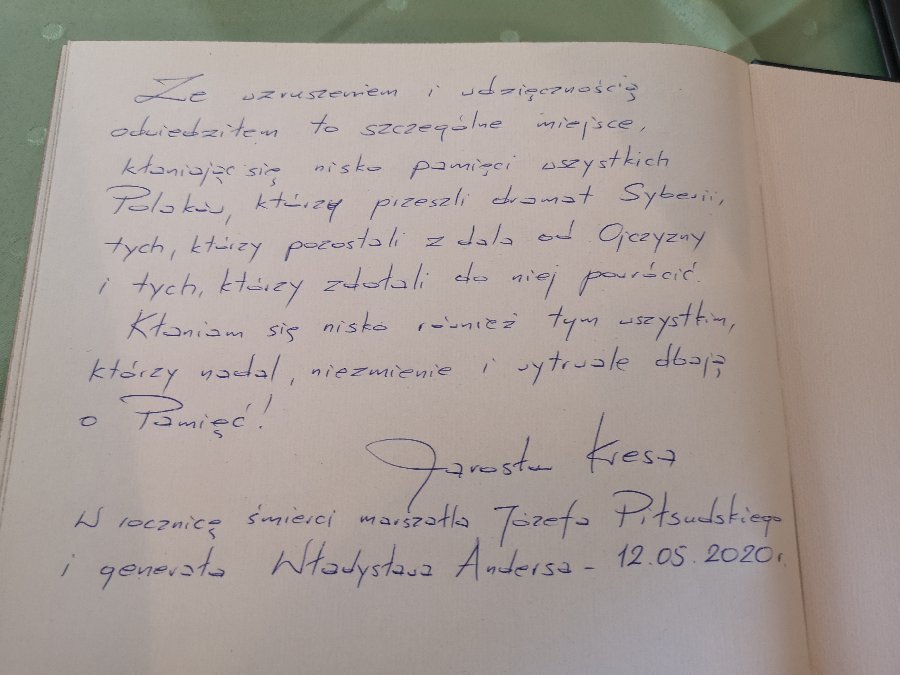 Ze wzruszeniem i wdzięcznością
odwiedziłem to szczególne miejsce,
kłaniając się nisko pamięci wszystkich
Polaków, którzy przeszli dramat Syberii,
tych, którzy pozostali z dala od Ojczyzny
i tych, którzy zdołali do niej powrócić.
Kłaniam się nisko również tym wszystkim,
którzy nadal, niezmienie i wytrwale dbają
o Pamięć!
Jarosław Kresa
W rocznicę śmierci marszałka Józefa Piłsudskiego
i generała Władysława Andersa - 12.05.2020r.